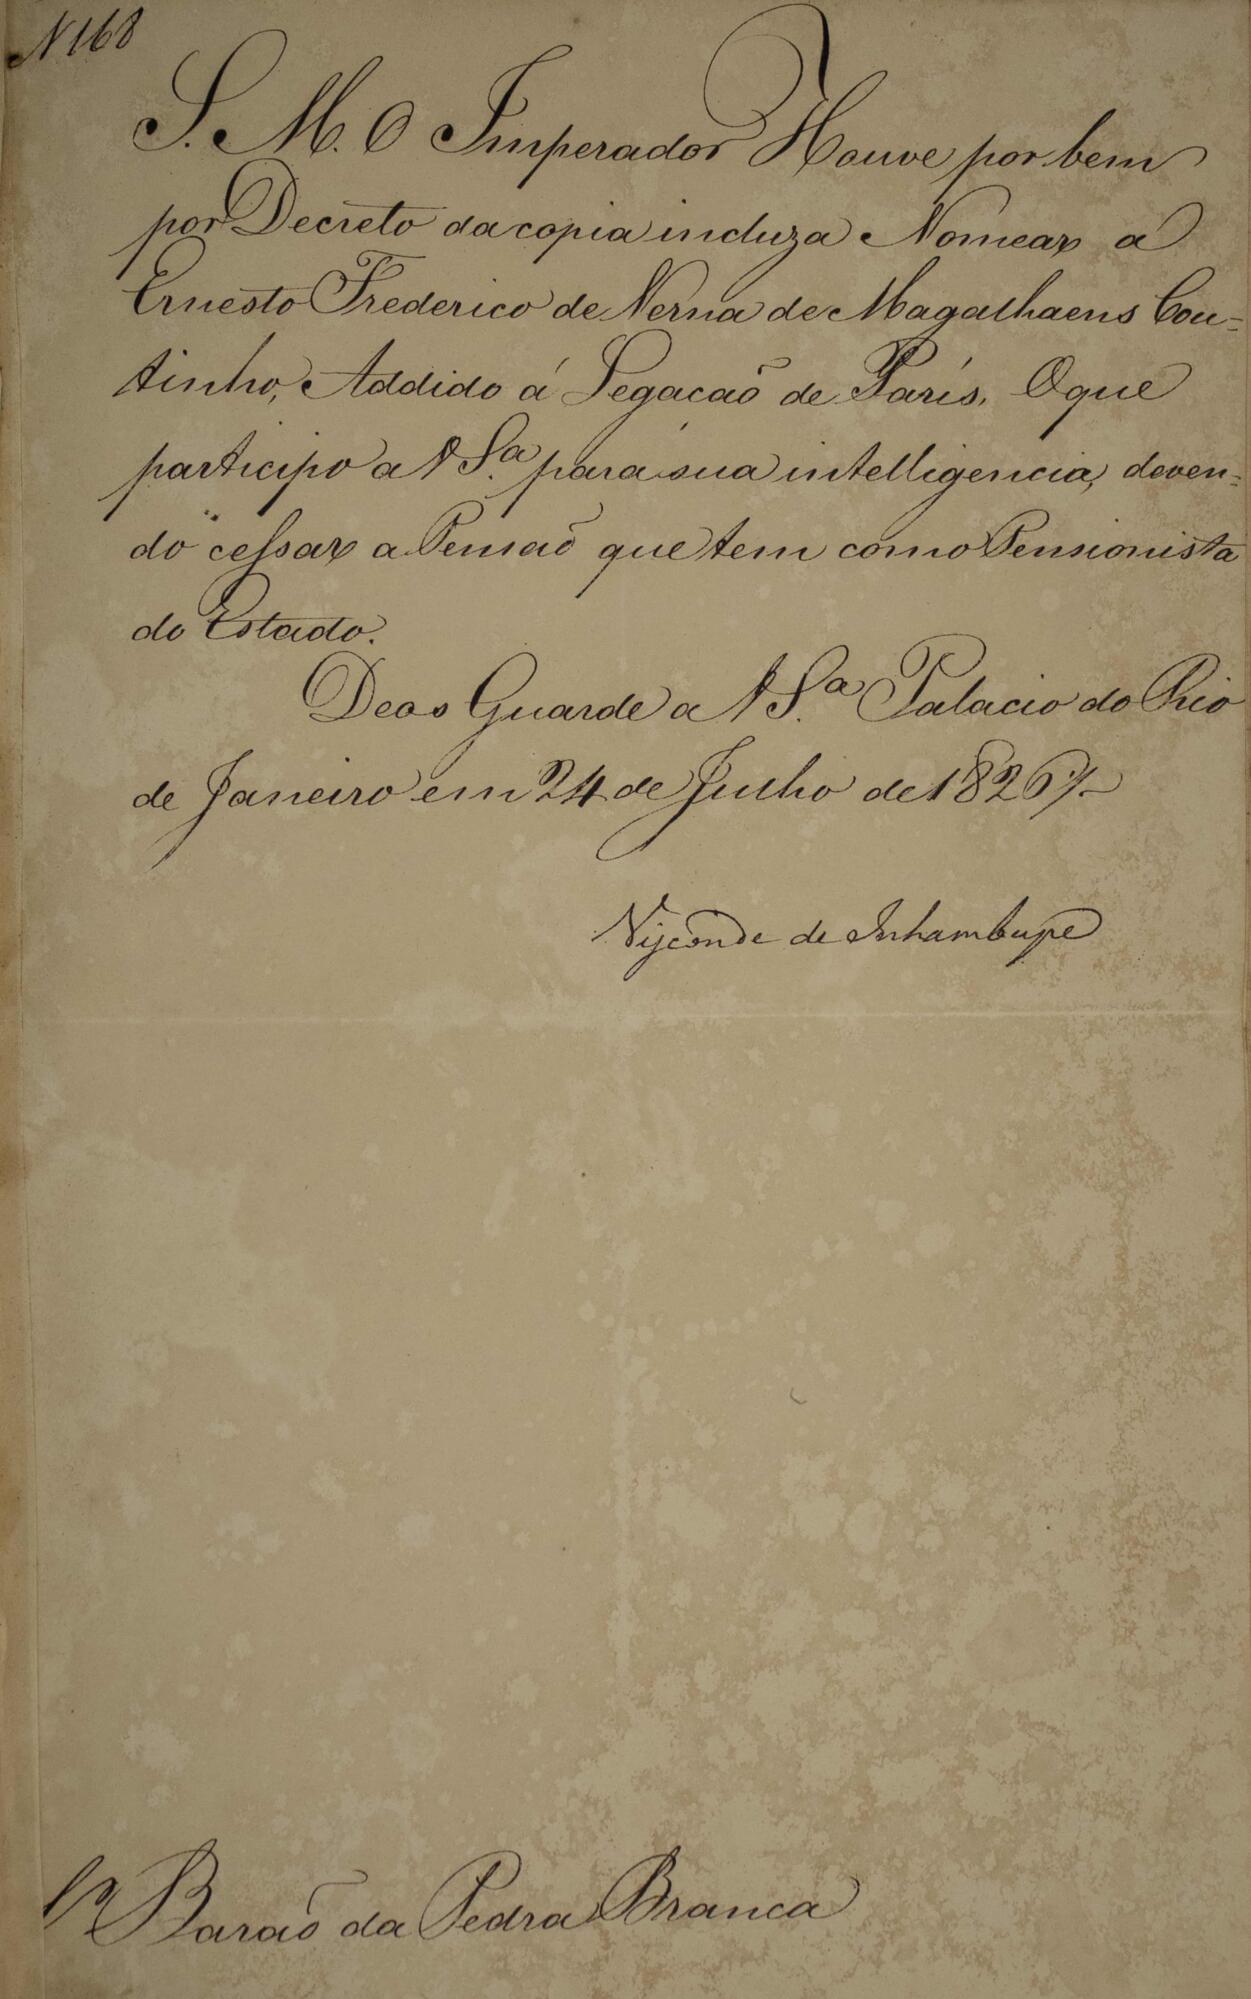 N 168
S. M. O Imperador Houve por bem
por Decreto da copia incluza Nomear a
Ernesto Frederico de Verna de Magalhaens Cou=
tinho, Addido á Legacaõ de París. O que
participo a V S.ª para sua intelligencia, deven=
do cessar a Pensaõ que tem como Pensionista
do Estado.
Deos Guarde a V S.ª Palacio do Rio
de Janeiro em 24 de Julho de 1826
Visconde de Inhambupe
Sr Baraõ da Pedra Branca